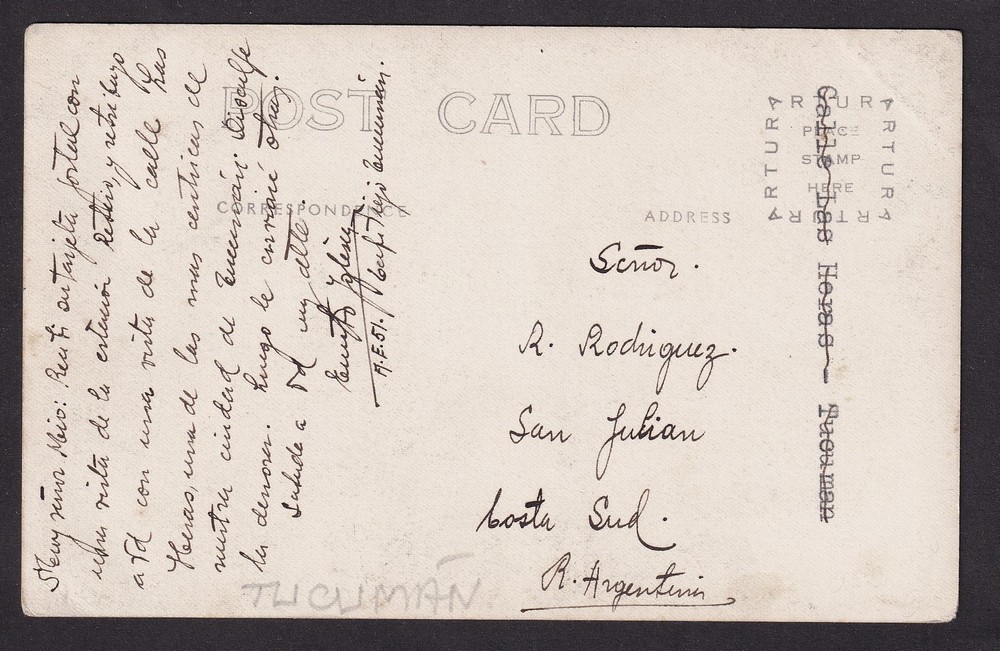 POST CARD
CORRESPONDENCE
ADDRESS
ARTURA
PLACE
STAMP
HERE
ARTURA
ARTURA
ARTURA
Calle Las Heras - Tucuman
Muy señor Mio: Recibi su tarjeta postal con
una vista de la estación Retiro, y retribuyo
a Vd con una vista de la calle Las
Heras, una de las mas centricas de
nuestra ciudad de Tucumán. Disculpe
la demora. Luego le enviaré otras.
Saluda a Vd muy atte.
Iglesias
51. Tucumán.
Señor.
R. Rodriguez.
San Julian
Costa Sud.
R. Argentina
TUCUMÁN